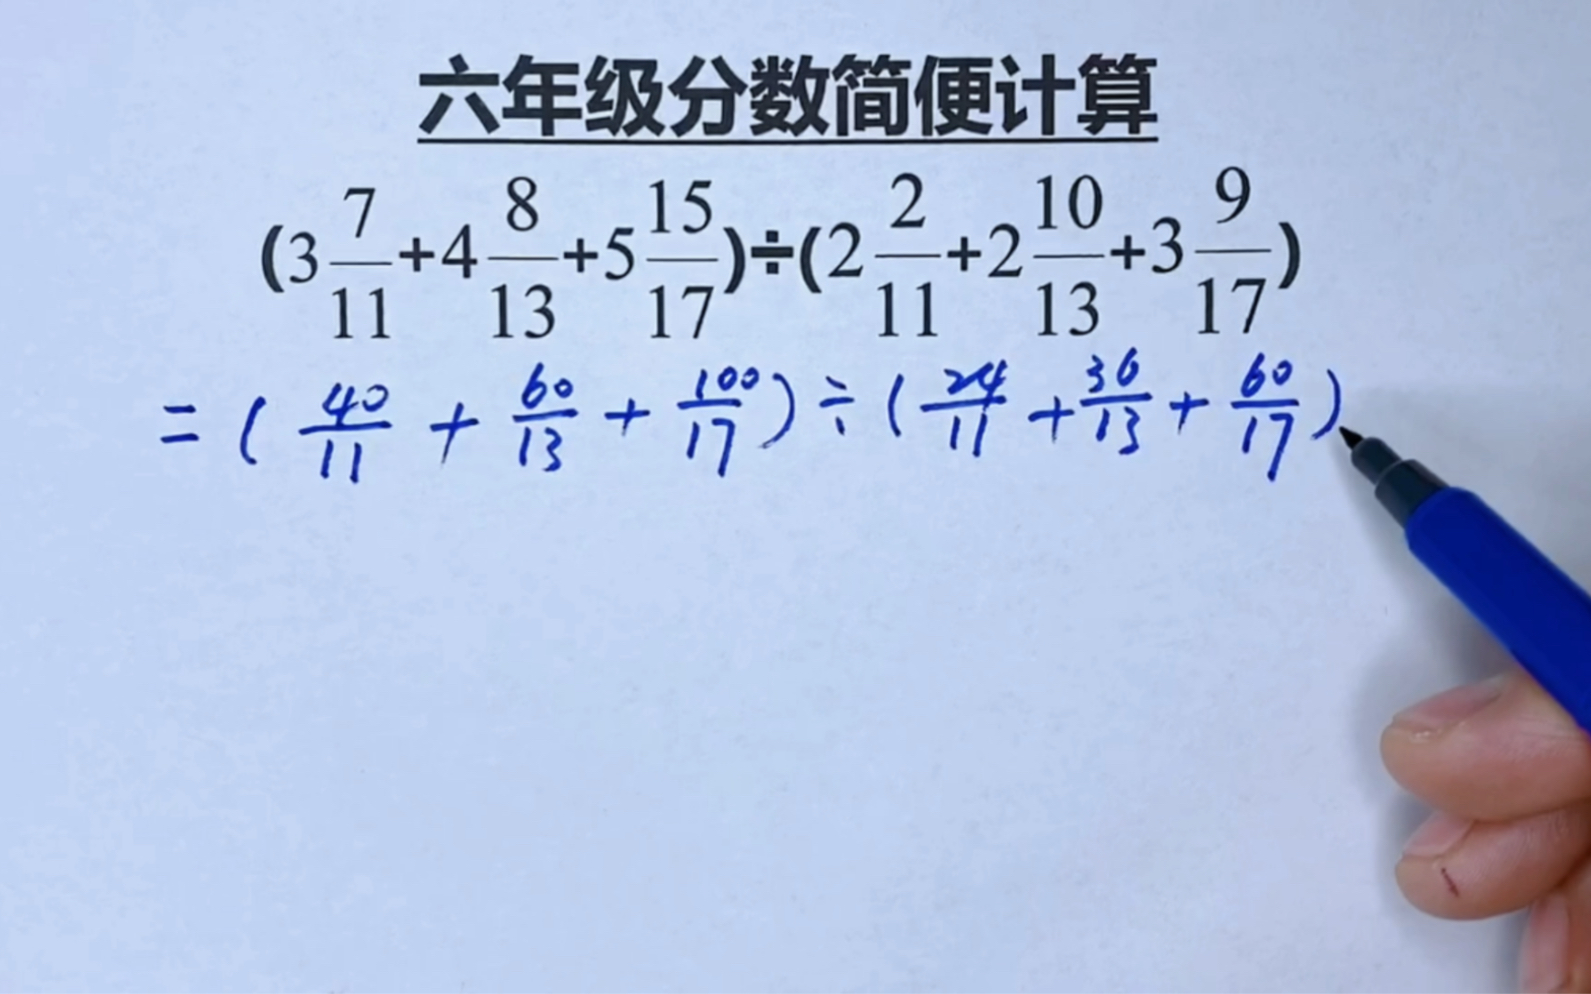 六年级分数简便计算
(3 7/11+4 8/13+5 15/17)÷(2 2/11+2 10/13+3 9/17)
=(40/11+60/13+100/17)÷(24/11+36/13+60/17)